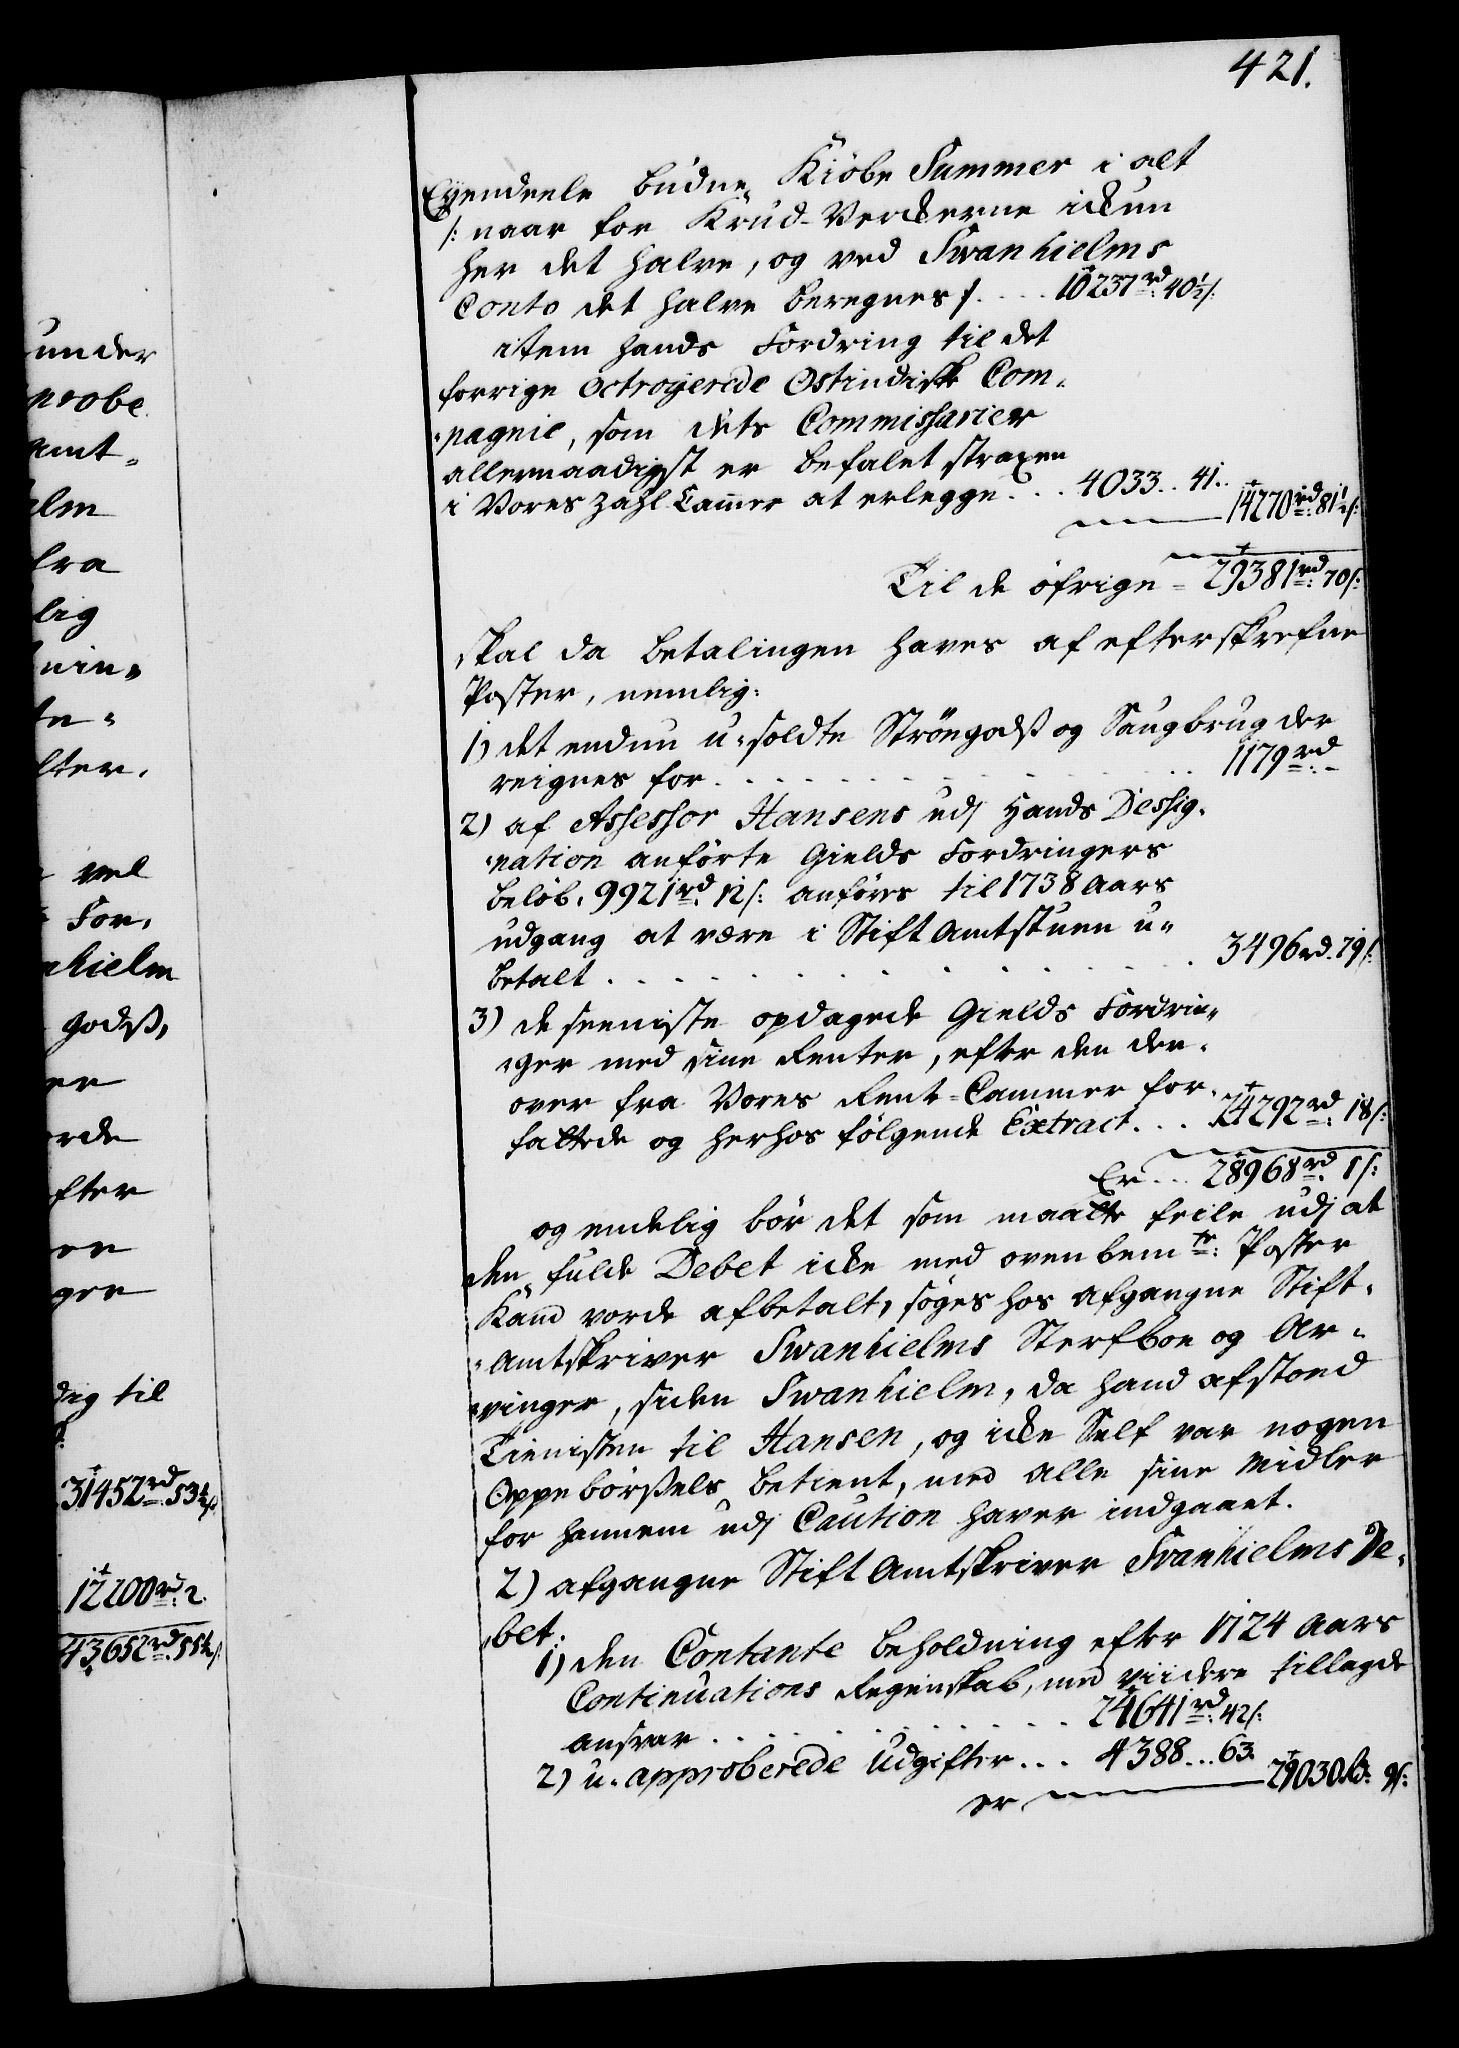 421.
Eyendeele budne Kiöbe Summer i alt
/: naar for Krud-Verckerne ickun
her det halve, og ved Swanhielms
Conto det halve beregnes /. . . . 10237 rd: 40½ /:
item hands Fordring til det
forrige Octroyerede Ostindisk Com-
-pagnie, som dets Commissarier
allernaadigst er befalet straxen
i Vores Zahl Cammer at erlegge . . . 4033 . . 41 . .
14270 rd: 81½ /:
Til de öfrige = 29381 rd: 70 /:
skal da betalingen haves af efterskrefne
Poster, nemlig:
1) det endnu u-soldte Ströegods og Saugbrug der
reignes for . . . . . . . . . . 1179 rd: -
2) af Assessor Hansens udj Hands Dessig-
-nation anförte Gields Fordringers
belöb. 9921 rd. 12 /: anföres til 1738 Aars
udgang at være i Stift Amtstuen u-
betalt . . . . . . . . . . . 3496 rd. 79 /:
3) de seeniste opdagede Gields Fordrin-
-ger med sine Renter, efter den der-
over fra Vores Rent-Cammer for-
fattede og herhos fölgende Extract . . . 24292 rd: 18 /:
Er . . . 28968 rd. 1 /:
og endelig bör det som maatte feile udj at
den fulde Debet icke med ovenbemte: Poster
Kand vorde afbetalt, söges hos afgangne Stift-
-Amtskriver Swanhielms Sterfboe og Ar-
-vinger, siden Swanhielm, da hand afstoed
Tienisten til Hansen, og icke Self var nogen
Oppebörßels betient, med alle sine Midler
for hannem udj Caution haver indgaaet.
2) afgangne Stift Amtskriver Svanhielms De-
-bet.
1) den Contante beholdning efter 1724 Aars
Continuations Regenskab, med viidere tillagde
ansvar . . . . . . . . . . 24641 rd: 42 /:
2) u-approberede Udgifter . . . 4388 . . . 63.
er 29030 rd: 9 /:
under
probe
amt-
alm
fra
lig
nin-
te-
lter.
vel
For-
nhielm
godß,
er
orde
fter
er
ger
dig til
31452 rd. 53½ /:
12200 rd. 2.
43652 rd. 55½ /: